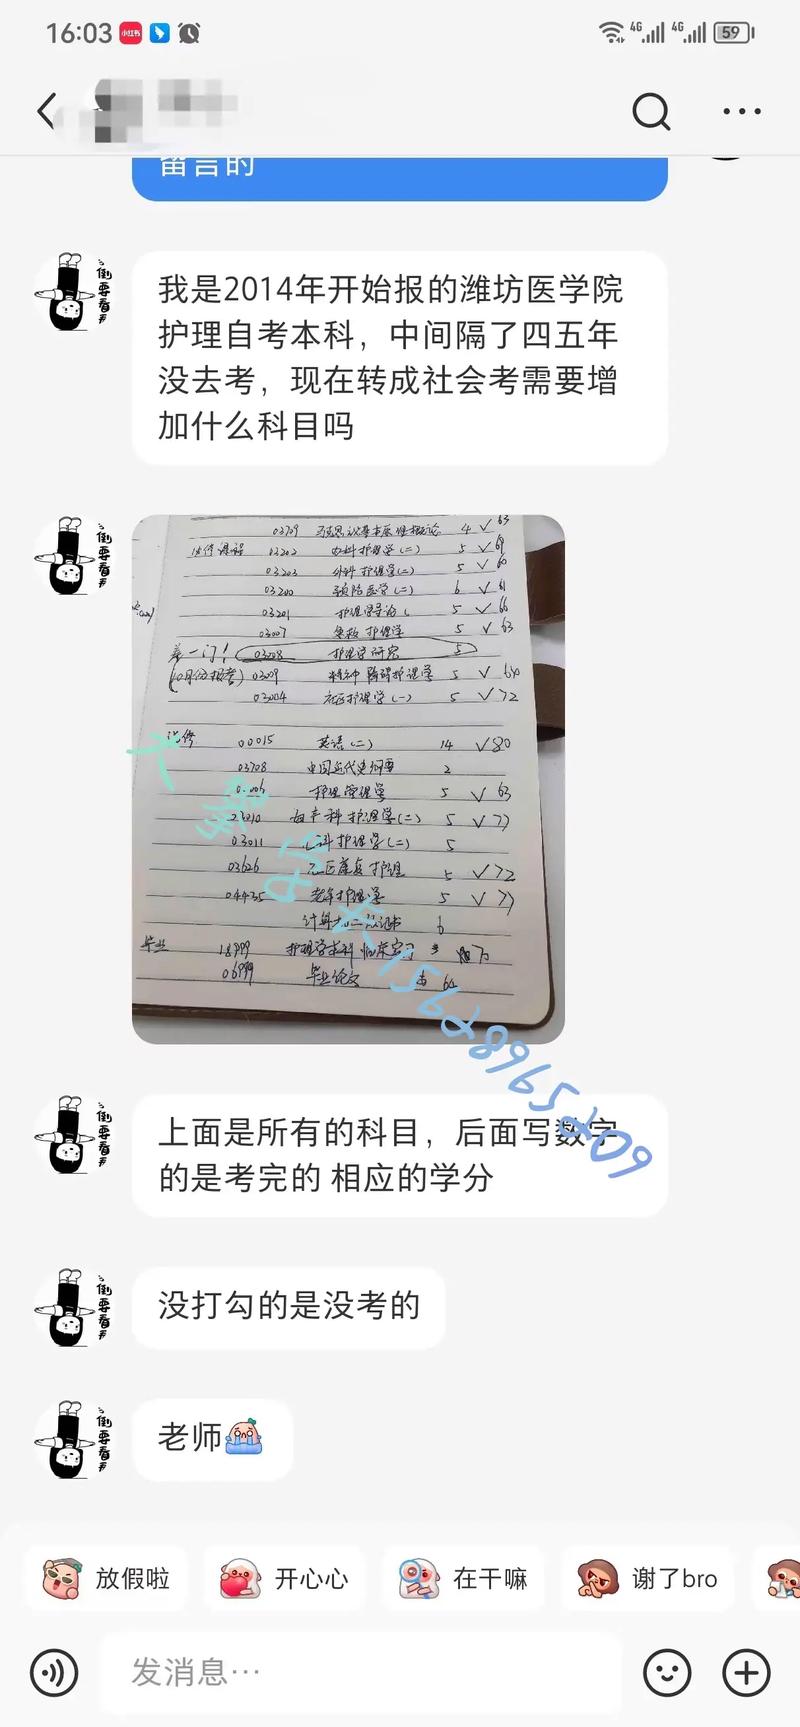 16:03
小红书
4G 4G 59
留言的
倒要看看
我是2014年开始报的潍坊医学院
护理自考本科，中间隔了四五年
没去考，现在转成社会考需要增
加什么科目吗
倒要看看
03709 马克思 基本原理概论 4 √ 63
课程 03202 内科护理学(二) 5 √ 69
03203 外科护理学(二) 5 √ 60
03200 预防医学(二) 6 √ 61
03201 护理学导论 5 √ 66
03007 急救护理学 5 √ 63
差一门! 03008 护理学研究 5
(10月份报考) 03009 精神障碍护理学 5 √
03004 社区护理学(一) 5 √ 72
选修 00015 英语(二) 14 √ 80
03708 中国近代史纲要 2
护理管理学 5 √ 63
妇产科护理学(二) 5 √ 77
03011 儿科护理学(二) 5
03626 社区康复护理 5 √ 72
04435 老年护理学 5 √ 77
6
毕业 18999 护理学本科临床实习
06999 毕业论文 64
15628965209
倒要看看
上面是所有的科目，后面写数字
的是考完的 相应的学分
倒要看看
没打勾的是没考的
倒要看看
老师
放假啦 开心心 在干嘛 谢了bro
发消息…